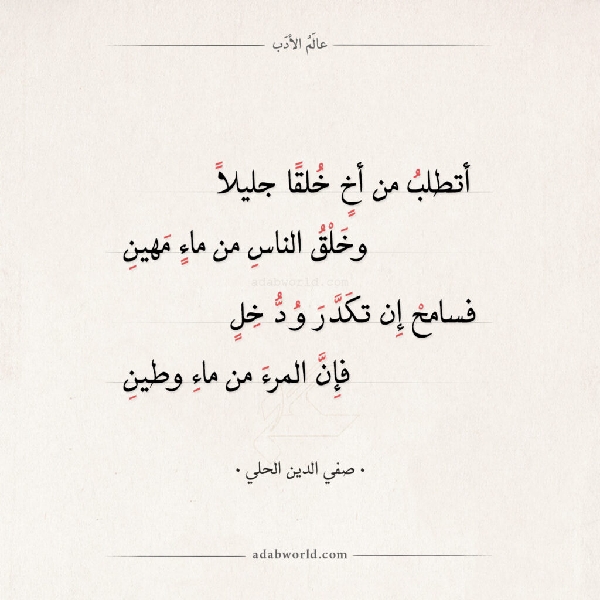 عالَمُ الأدَب
أتطلبُ من أخٍ خُلقًا جليلاً
وخَلْقُ الناسِ من ماءٍ مَهينِ
adabworld.com
فسامحْ إِن تكَدَّرَ وُدُّ خِلٍ
فإِنَّ المرءَ من ماءِ وطينِ
• صفي الدين الحلي •
adabworld.com